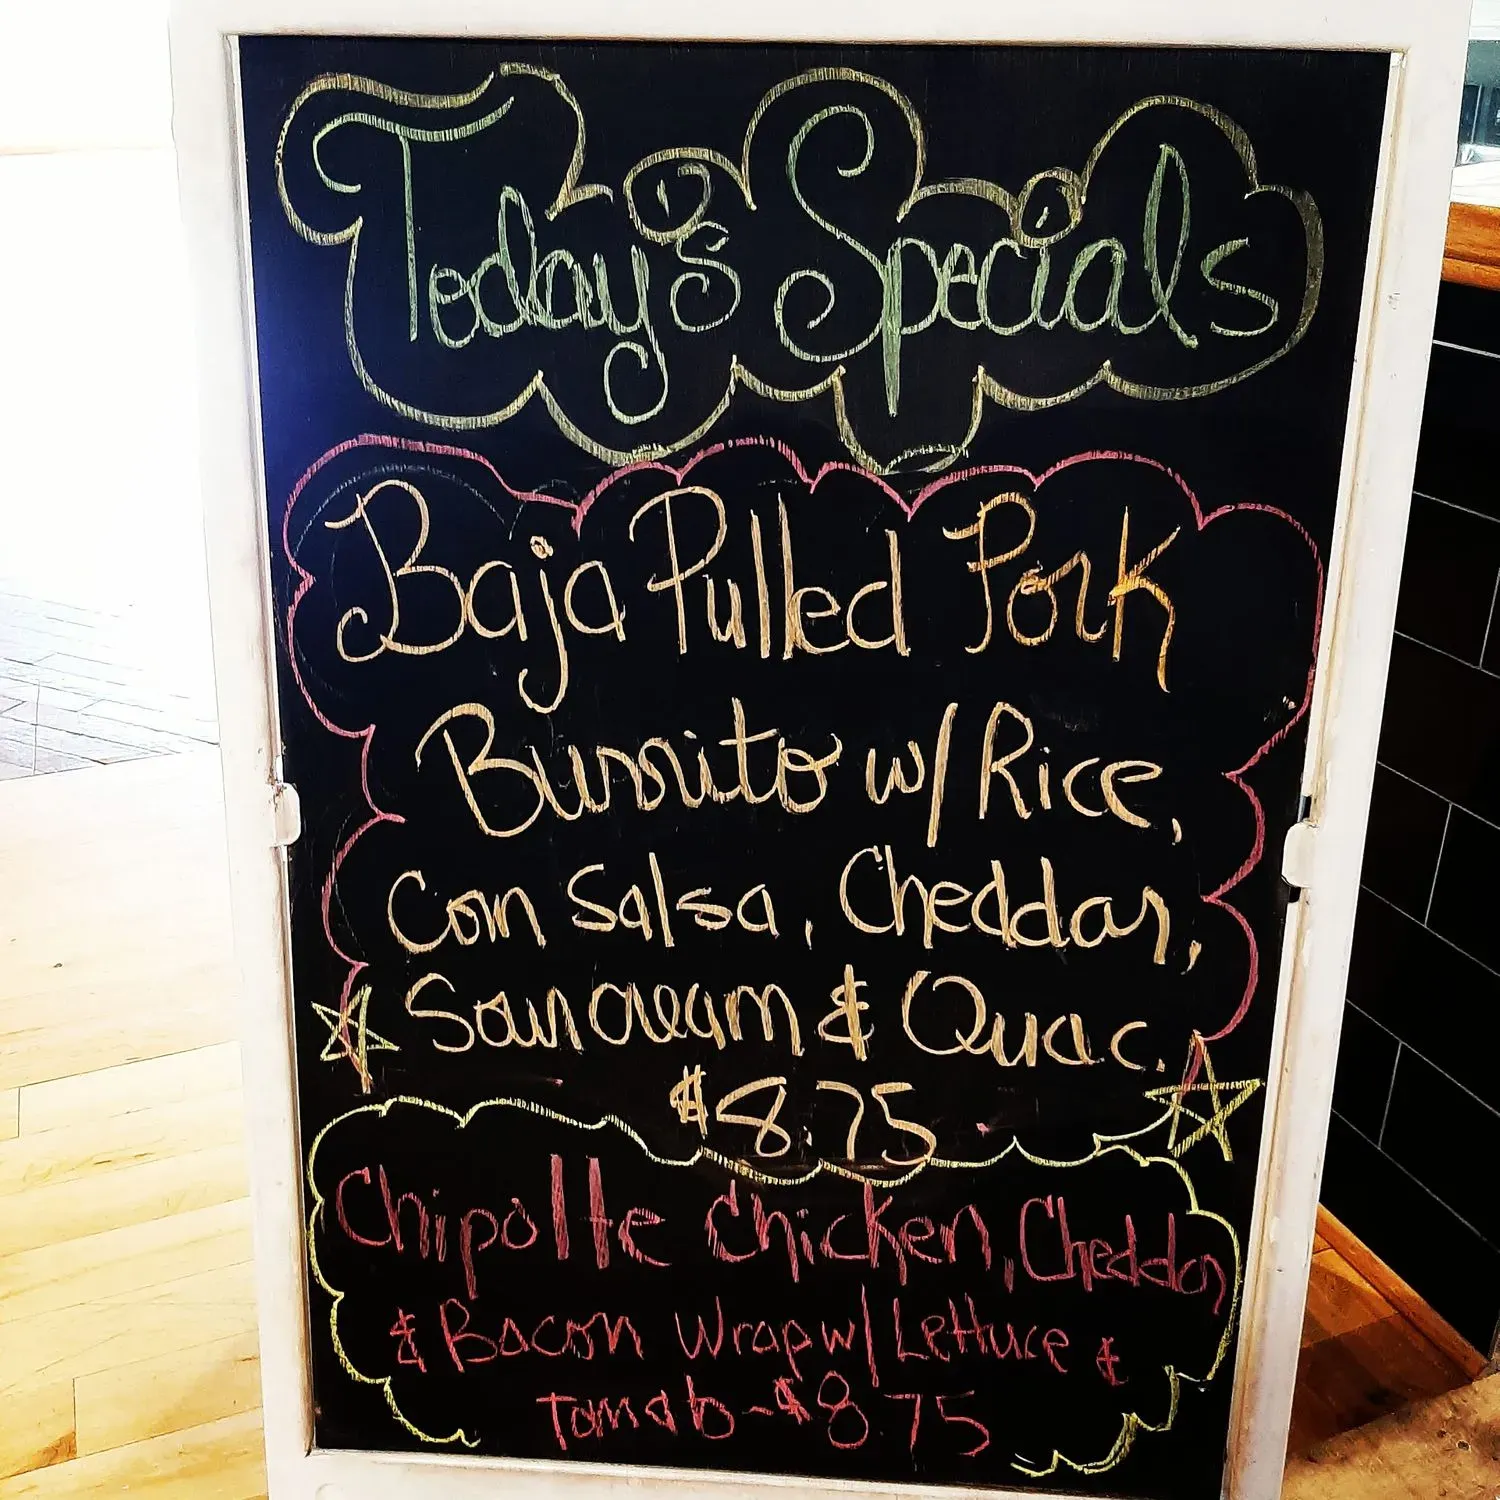 Today's Specials
Baja Pulled Pork
Burrito w/ Rice,
Corn Salsa, Cheddar,
Sour cream & Quac.
$8.75
Chipolte Chicken, Cheddar
& Bacon Wrap w/ Lettuce &
Tomato - $8.75